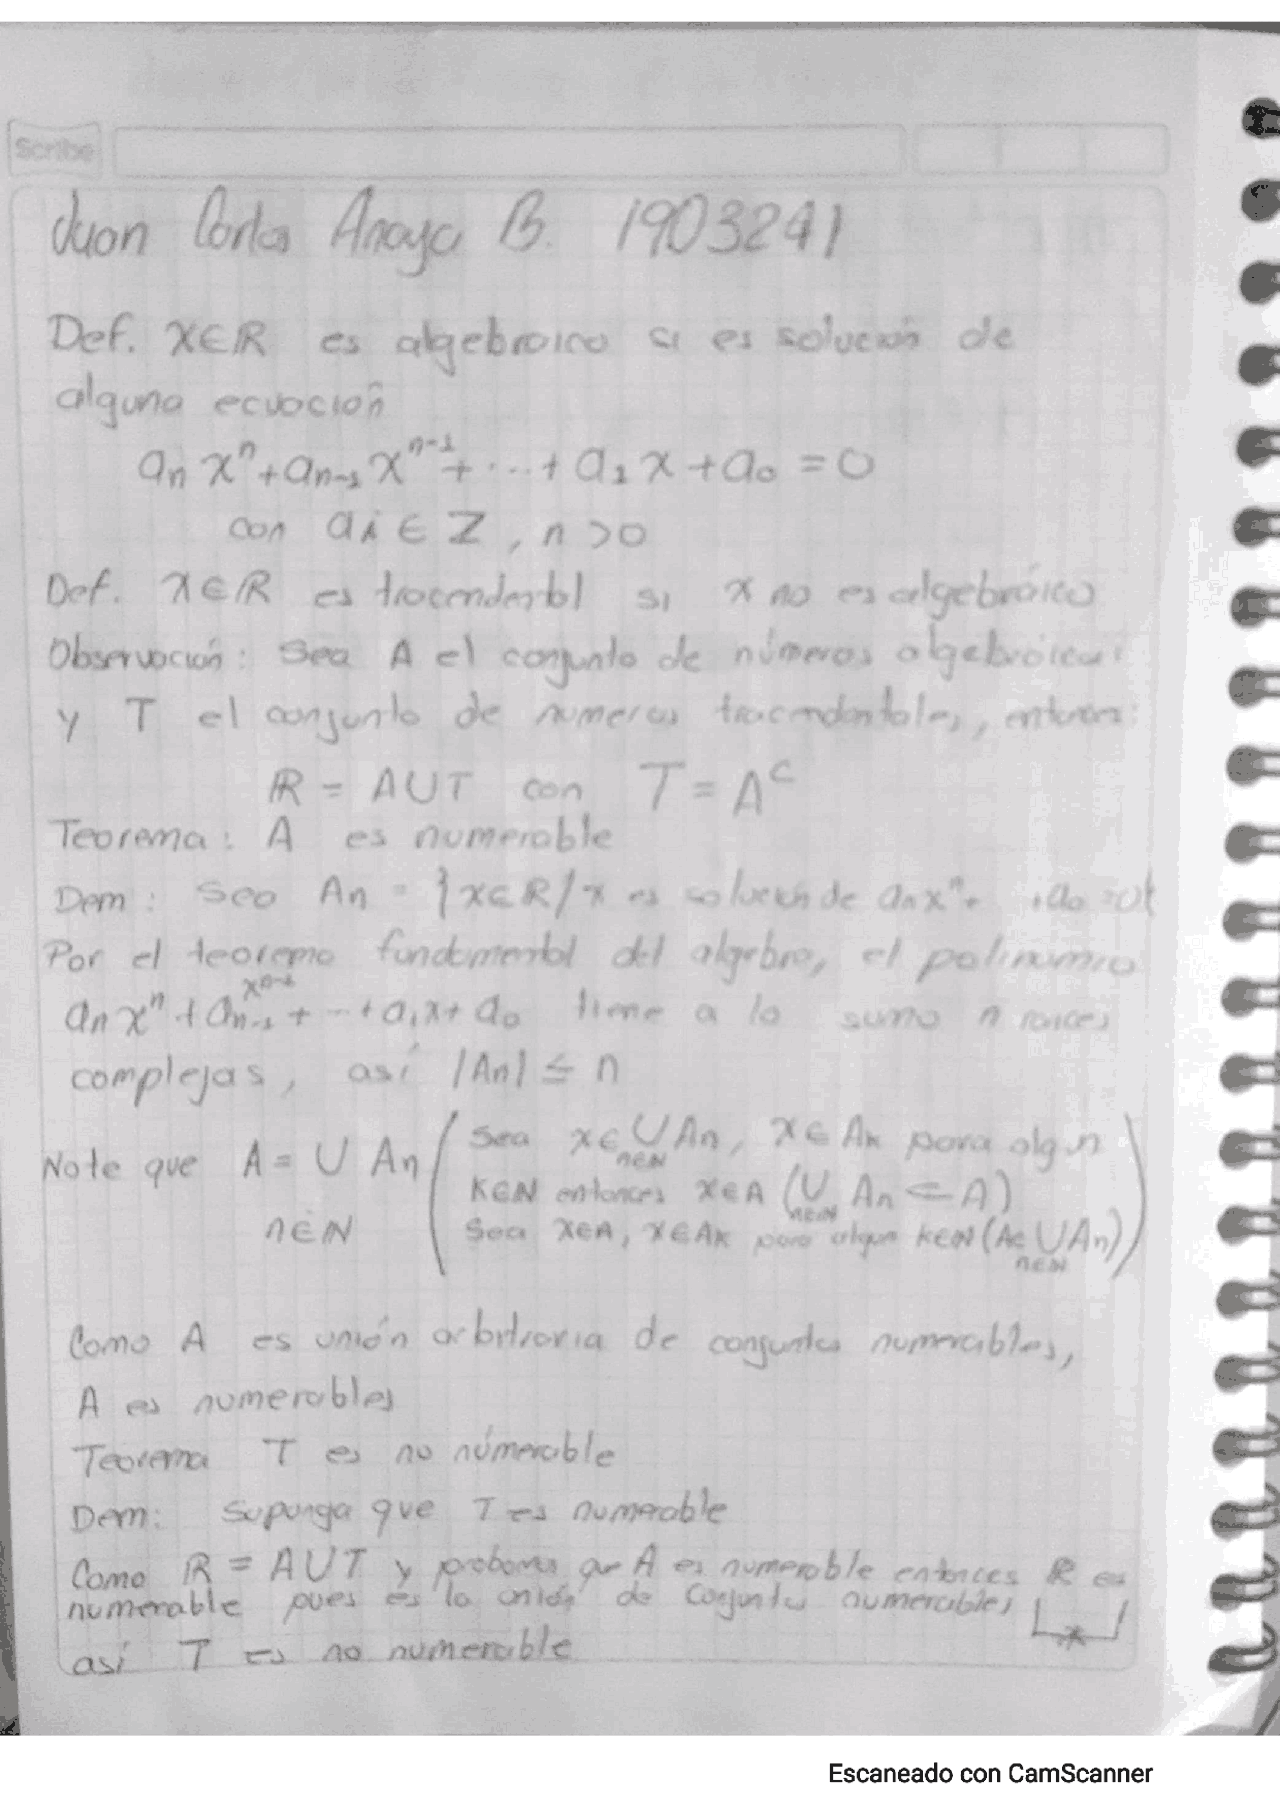 Scribe
Juan Carlos Anaya B. 1903241
Def. x∈ℝ es algebraico si es solución de
alguna ecuación
aₙxⁿ+aₙ₋₁xⁿ⁻¹+...+a₁x+a₀=0
con aᵢ∈Z, n>0
Def. x∈ℝ es tracendental si x no es algebráico
Observación: Sea A el conjunto de números algebráicos
y T el conjunto de numeros tracendentales, entonces:
ℝ = A∪T con T=Aᶜ
Teorema: A es numerable
Dem: Sea An = {x∈ℝ/x es solución de aₙxⁿ+ +a₀=0}
Por el teorema fundamental del algebra, el polinomio
aₙxⁿ+aₙ₋₁xⁿ⁻¹+...+a₁x+a₀ tiene a lo sumo n raices
complejas, así |An| ≤ n
Note que A = ∪ An n∈ℕ
(Sea x∈∪An, n∈ℕ x∈Aₖ para algun
k∈ℕ entonces x∈A (∪ An ⊂ A) n∈ℕ
Sea x∈A, x∈Aₖ para algun k∈ℕ (A⊂∪An)) n∈ℕ
Como A es unión arbitraria de conjuntos numerables,
A es numerables
Teorema T es no númerable
Dem: Suponga que T es numerable
Como ℝ = A∪T y probamos que A es numerable entonces ℝ es
numerable pues es la unión de conjuntos numerables *
así T es no numerable
Escaneado con CamScanner